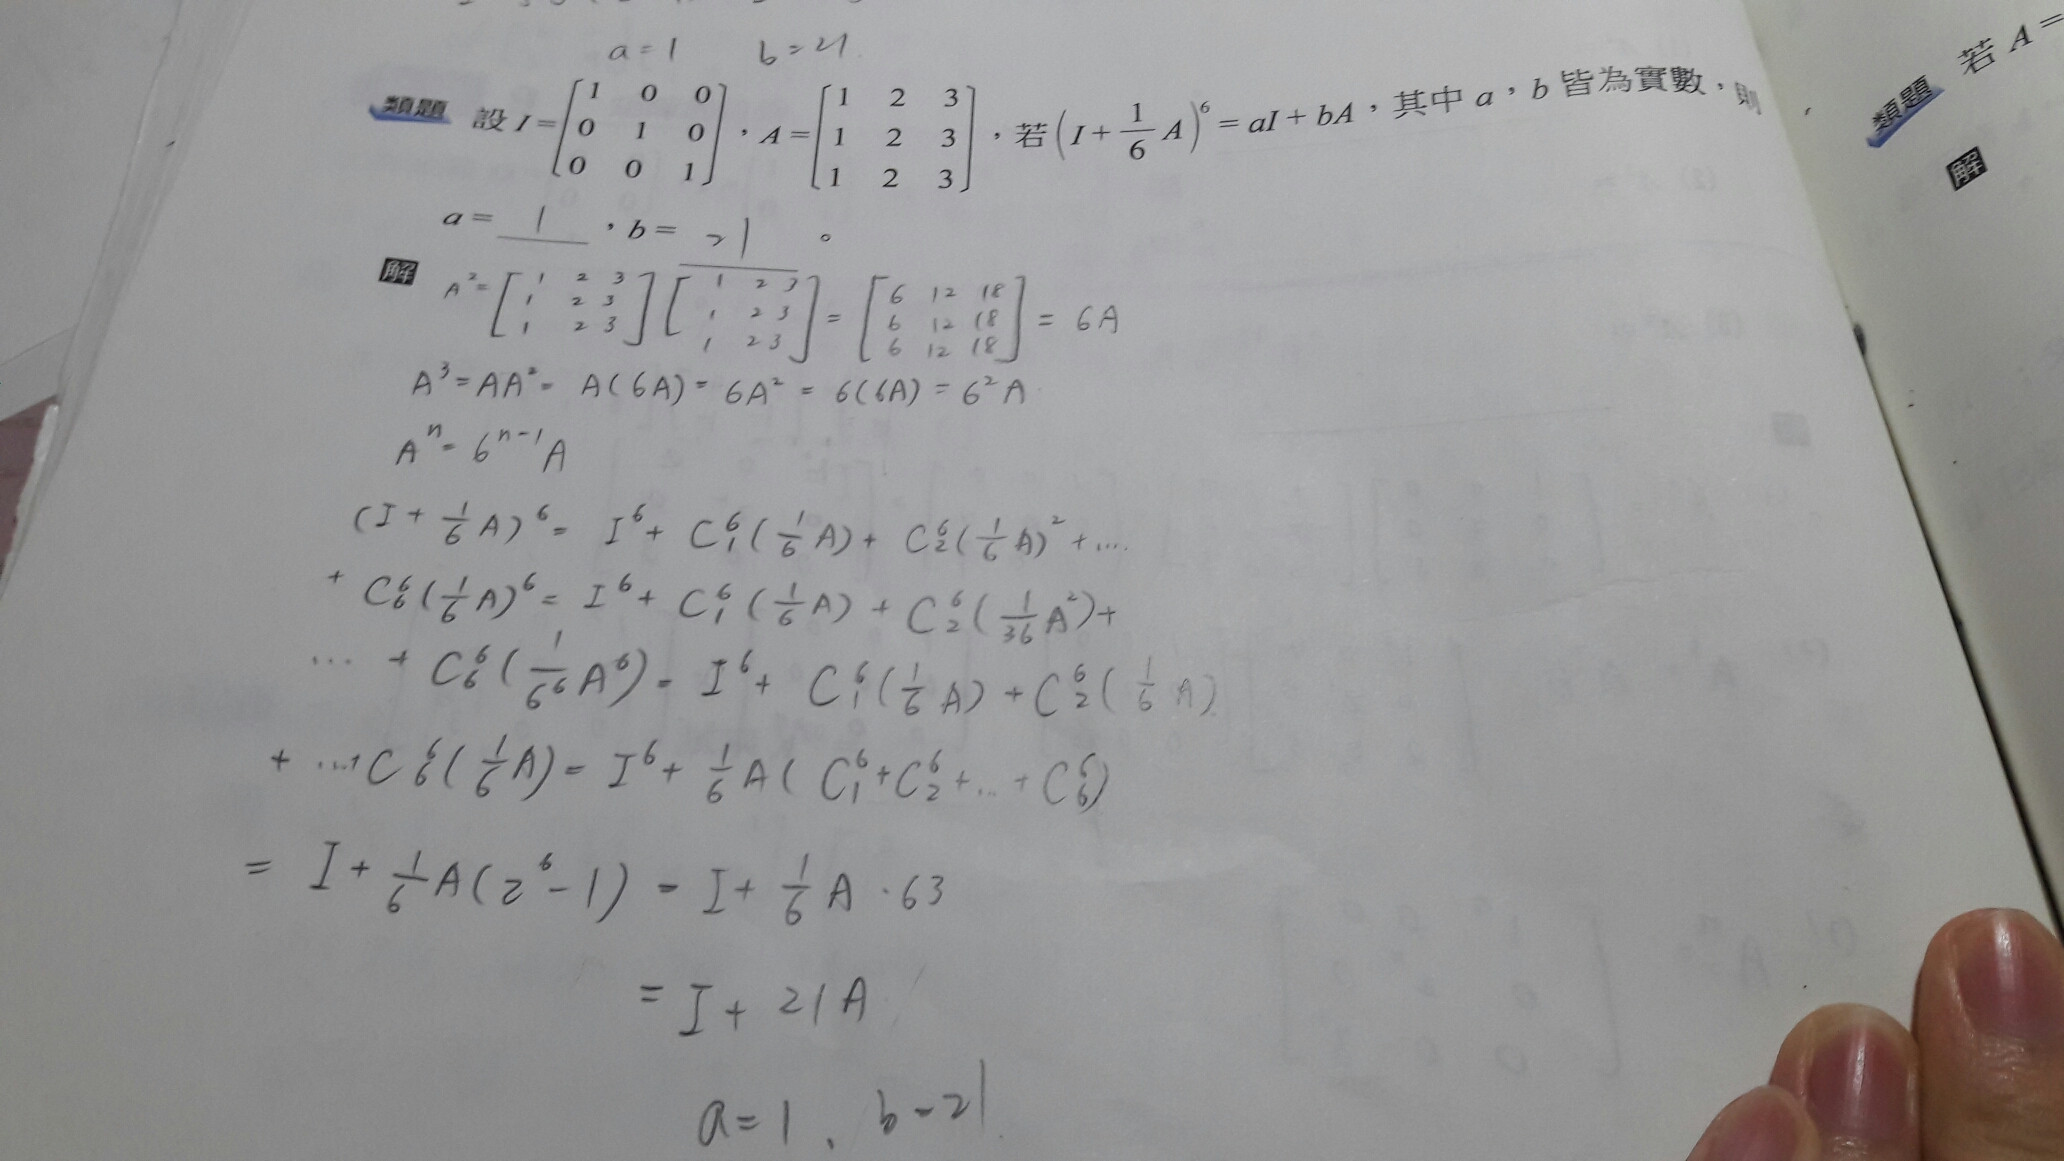 a=1 b=21
類題 設 I=[1 0 0; 0 1 0; 0 0 1],A=[1 2 3; 1 2 3; 1 2 3],若(I+1/6 A)^6=aI+bA,其中 a,b 皆為實數,則
a= 1 ,b= 21 。
解 A^2=[1 2 3; 1 2 3; 1 2 3][1 2 3; 1 2 3; 1 2 3]=[6 12 18; 6 12 18; 6 12 18]=6A
A^3=AA^2=A(6A)=6A^2=6(6A)=6^2A
A^n=6^{n-1}A
(I+1/6 A)^6=I^6+C^6_1(1/6 A)+C^6_2(1/6 A)^2+....
+C^6_6(1/6 A)^6=I^6+C^6_1(1/6 A)+C^6_2(1/36 A^2)+
...+C^6_6(1/6^6 A^6)=I^6+C^6_1(1/6 A)+C^6_2(1/6 A)
+...+C^6_6(1/6 A)=I^6+1/6 A(C^6_1+C^6_2+...+C^6_6)
=I+1/6 A(2^6-1)=I+1/6 A·63
=I+21A
a=1、b=21
類題 若 A=
解